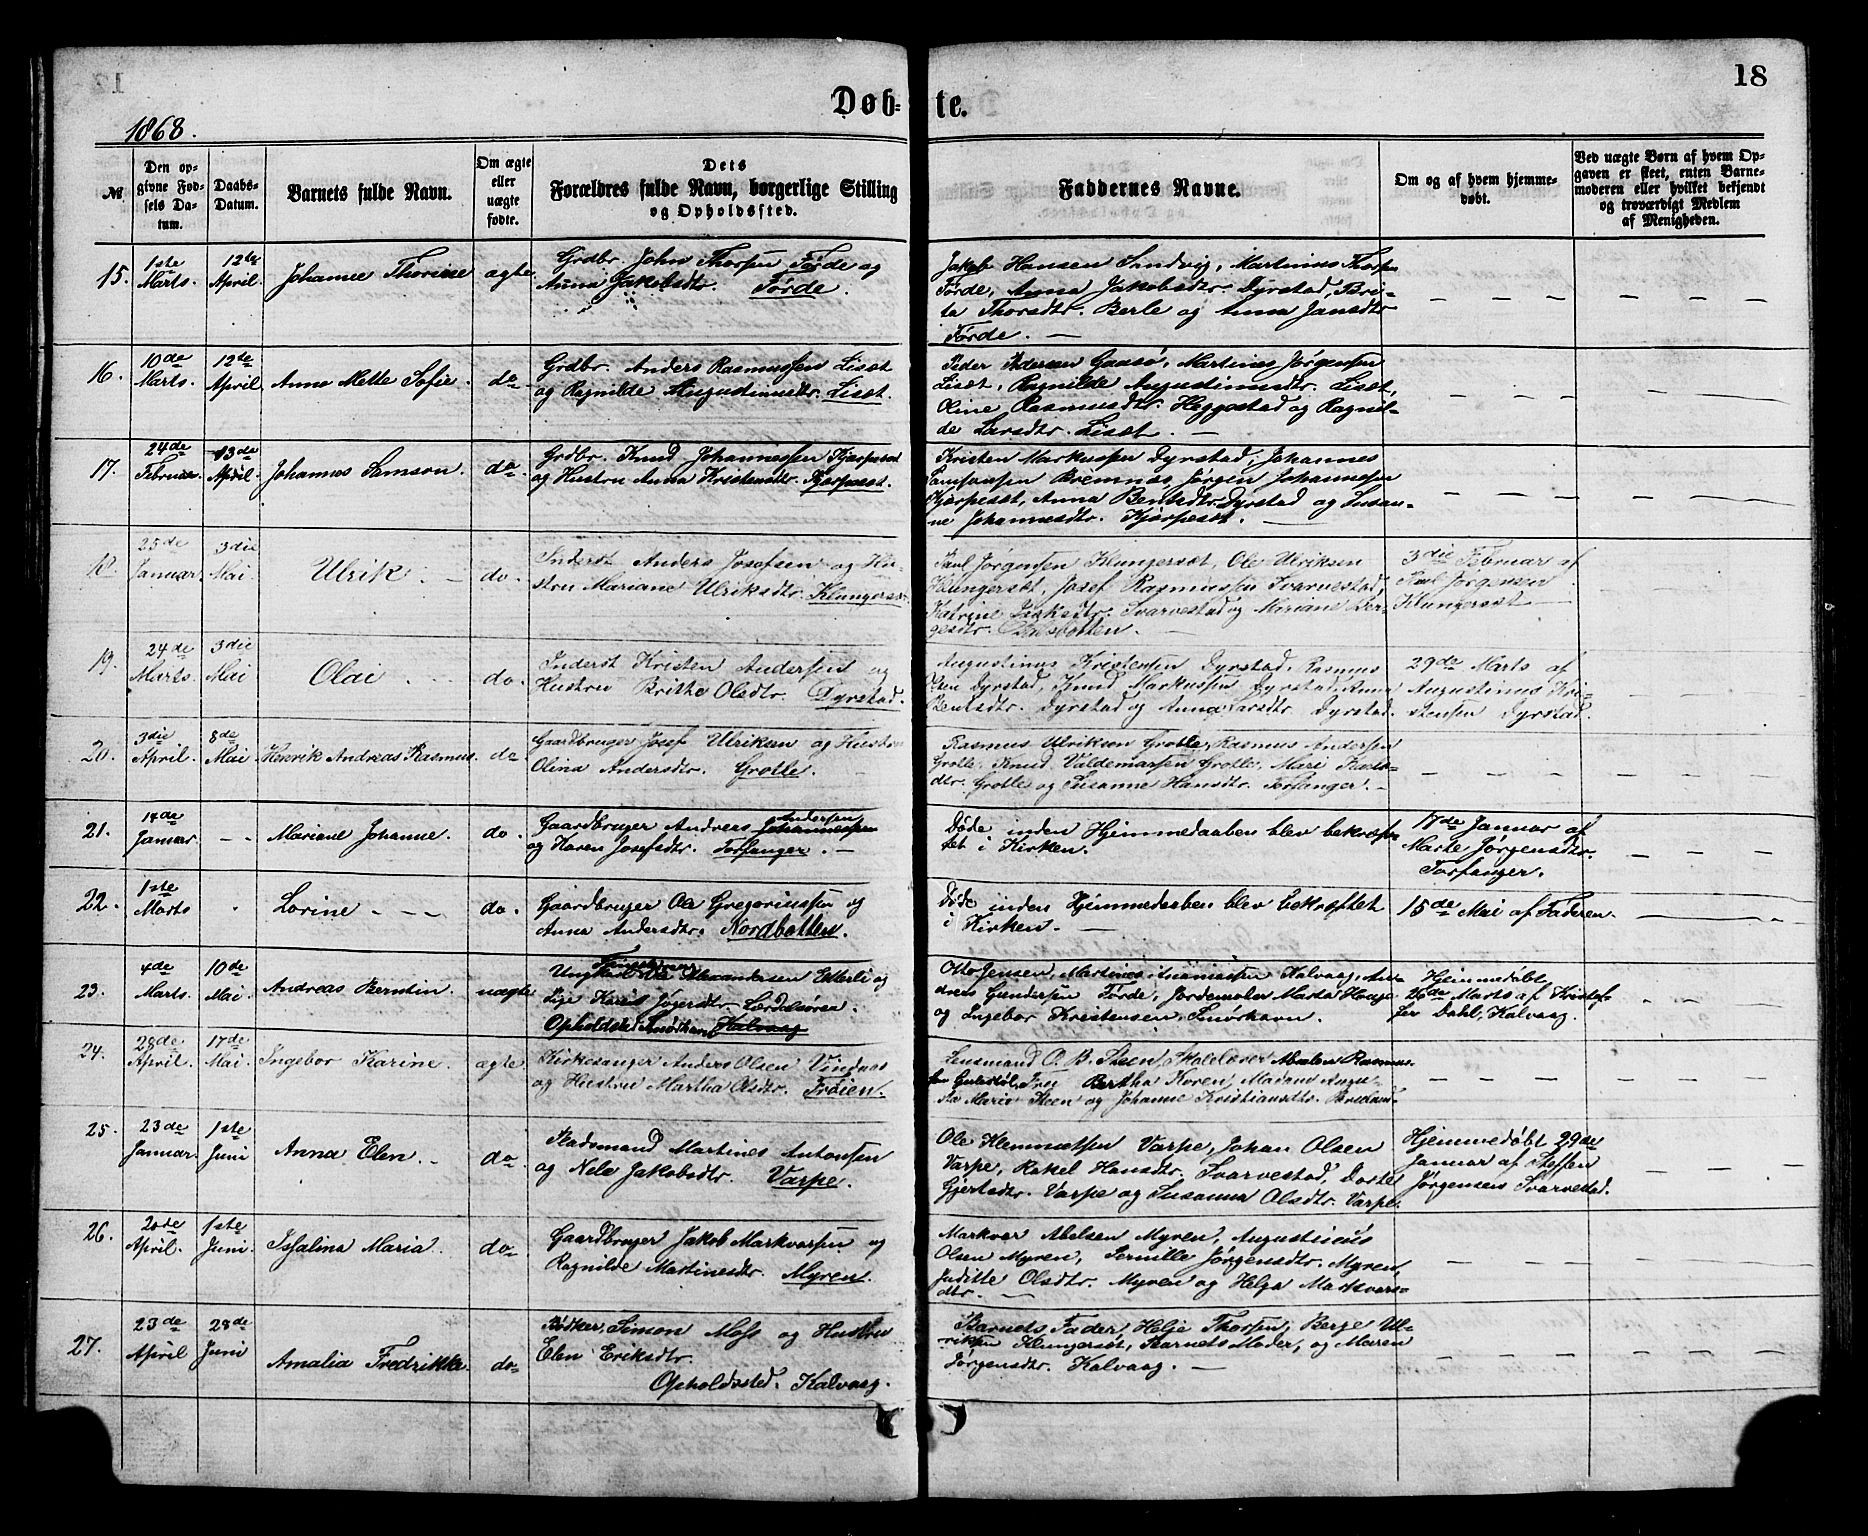 18
Døb-te.
1868.
№
Den op-
givne Fød-
sels Da-
tum.
Daabs-
Datum.
Barnets fulde Navn.
Om ægte
eller
uægte
fødte.
Dets
Forældres fulde Navn, borgerlige Stilling
og Opholdssted.
Faddernes Navne.
Om og af hvem hjemme-
døbt.
Ved uægte Børn af hvem Op-
gaven er skeet, enten Barne-
moderen eller hvilket bekjendt
og troværdigt Medlem
af Menigheden.
15. 1ste Marts. 12te April Johanne Thorine ægte
Grdbr. John Thorsen Førde og
Anna Jakobsdtr. Førde.
Jakob Hansen Sandvig, Martinus Thorsen
Førde, Anna Jakobsdtr. Dyrstad, Bri-
te Thorsdtr. Berle og Anna Jansdtr
Førde. —
16. 10de Marts. 12te April Anne Mette Sofie. do
Grdbr. Anders Rasmussen Liset
og Ragnilde Augustinusdtr. Liset.
Peder Pedersen Gaasø, Martinus Jørgensen
Liset, Ragnilde Augustinusdtr. Liset,
Oline Rasmusdtr. Heggestad og Ragnil-
de Larsdtr. Liset. —
17. 24de Februar. 13de April. Johannes Samson. do.
Grdbr. Knud Johannessen Kjærpeset
og Hustru Anna Kristensdtr. Kjærpeset.
Kristen Markussen Dyrstad, Johannes
Samsonsen Bremnes, Jørgen Johannesen
Kjærpeset, Anna Bentsdtr. Dyrstad og Susan-
ne Johannesdtr. Kjærpeset. —
18. 25de Januar. 3die Mai. Ulrik. — do.
Inderst Anders Josefsen og Hu-
stru Mariane Ulriksdtr. Klungerset.
Paul Jørgensen Klungerset, Ole Ulriksen
Klungerset, Josef Rasmussen Svarvestad,
Katrine Svarvestad og Mariane Bør-
gesdtr. —
3die Februar af
Paul Jørgensen
Klungerset —
19. 24de Marts. 3die Mai Olai — do.
Inderst Kristen Andersen og
Hustru Britte Olsdtr. Dyrstad.
Augustinus Kristensen Dyrstad, Rasmus
Olsen Dyrstad, Knud Markussen Dyrstad, Anna
Bentsdtr. Dyrstad og Anna Larsdtr Dyrstad.
29de Marts af
Augustinus Kri-
stensen Dyrstad.
20. 3die April. 8de Mai Henrik Andreas Rasmus. do.
Gaardbruger Josef Ulriksen og Hustru
Olina Andersdtr. Grotle. —
Rasmus Ulriksen Grotle, Rasmus Andersen
Grotle, Knud Valdemarsen Grotle, Mari
dtr. Grotle og Susanne Hansdtr. Torfanger. —
21. 14de Januar. — Mariane Johanne. do.
Gaardbruger Andreas Johannessen Andersen
og Karen Josefsdtr. Torfanger. —
Døde inden Hjemmedaaben blev bekræf-
tet i Kirken.
17de Januar af
Marte Jørgensdtr.
Torfanger.
22. 1ste Marts Lorine — do.
Gaardbruger Ole Gregoriussen og
Anna Andersdtr. Nordbotten.
Døde inden Hjemmedaaben blev bekræftet
i Kirken. —
15de Mai af Faderen.
23. 4de Marts 10de Mai Andreas Berntin. uægte
Ungkarl Alexandersen Etterli og
Pige Lærdalsøren.
Opholdsted Smørhavn Kalvaag
Otto Jensen, Martines Ananiassen Kalvaag, An-
ders Gundersen Førde, Jordemoder Marta Hauge
og Ingebor Kristensen, Smørhavn.
Hjemmedøbt
26de Marts af Kristof-
fer Dahl, Kalvaag.
24. 28de April. 17de Mai Ingebor Karine. ægte
Kirkesanger Anders Olsen Vindnes
og Hustru Martha Olsdtr. Frøien.
Lensmand O. B. Steen, Skolelærer Absalon Rasmus-
sen Gulestøl, Fru Bertha Koren, Madame Augu-
sta Marie Steen og Johanne Kristiansdtr. Bredand
25. 23de Januar. 1ste Juni Anna Elen. — do.
Pladsmand Martines Antonsen
og Nele Jakobsdtr. Varpe.
Ole Klemmetsen Varpe, Johan Olsen
Varpe, Rakel Hansdtr. Svarvestad, Dortet
Gjertsdtr. Varpe og Susanna Olsdtr. Varpe.
Hjemmedøbt 29de
Januar af Steffen
Jørgensen Svarvestad.
26. 20de April. 1ste Juni. Issalina Maria. do.
Gaardbruger Jakob Markvarsen og
Ragnilde Martinesdtr. Myren.
Markvar Abelsen Myren, Augustinus
Olsen Myren, Pernille Jørgensdtr. Myren,
Juditte Olsdtr. Myren og Helga Markvars-
dtr. —
27. 23de April 28de Juni Amalia Fredrikke. do.
Bødker, Simon Moss og Hustru
Elen Eriksdtr.
Opholdsted. Kalvaag.
Barnets Fader, Helje Thorsen, Berge Ul-
riksen Klungerset, Barnets Moder, og Maren
Jørgensdtr. Kalvaag. —